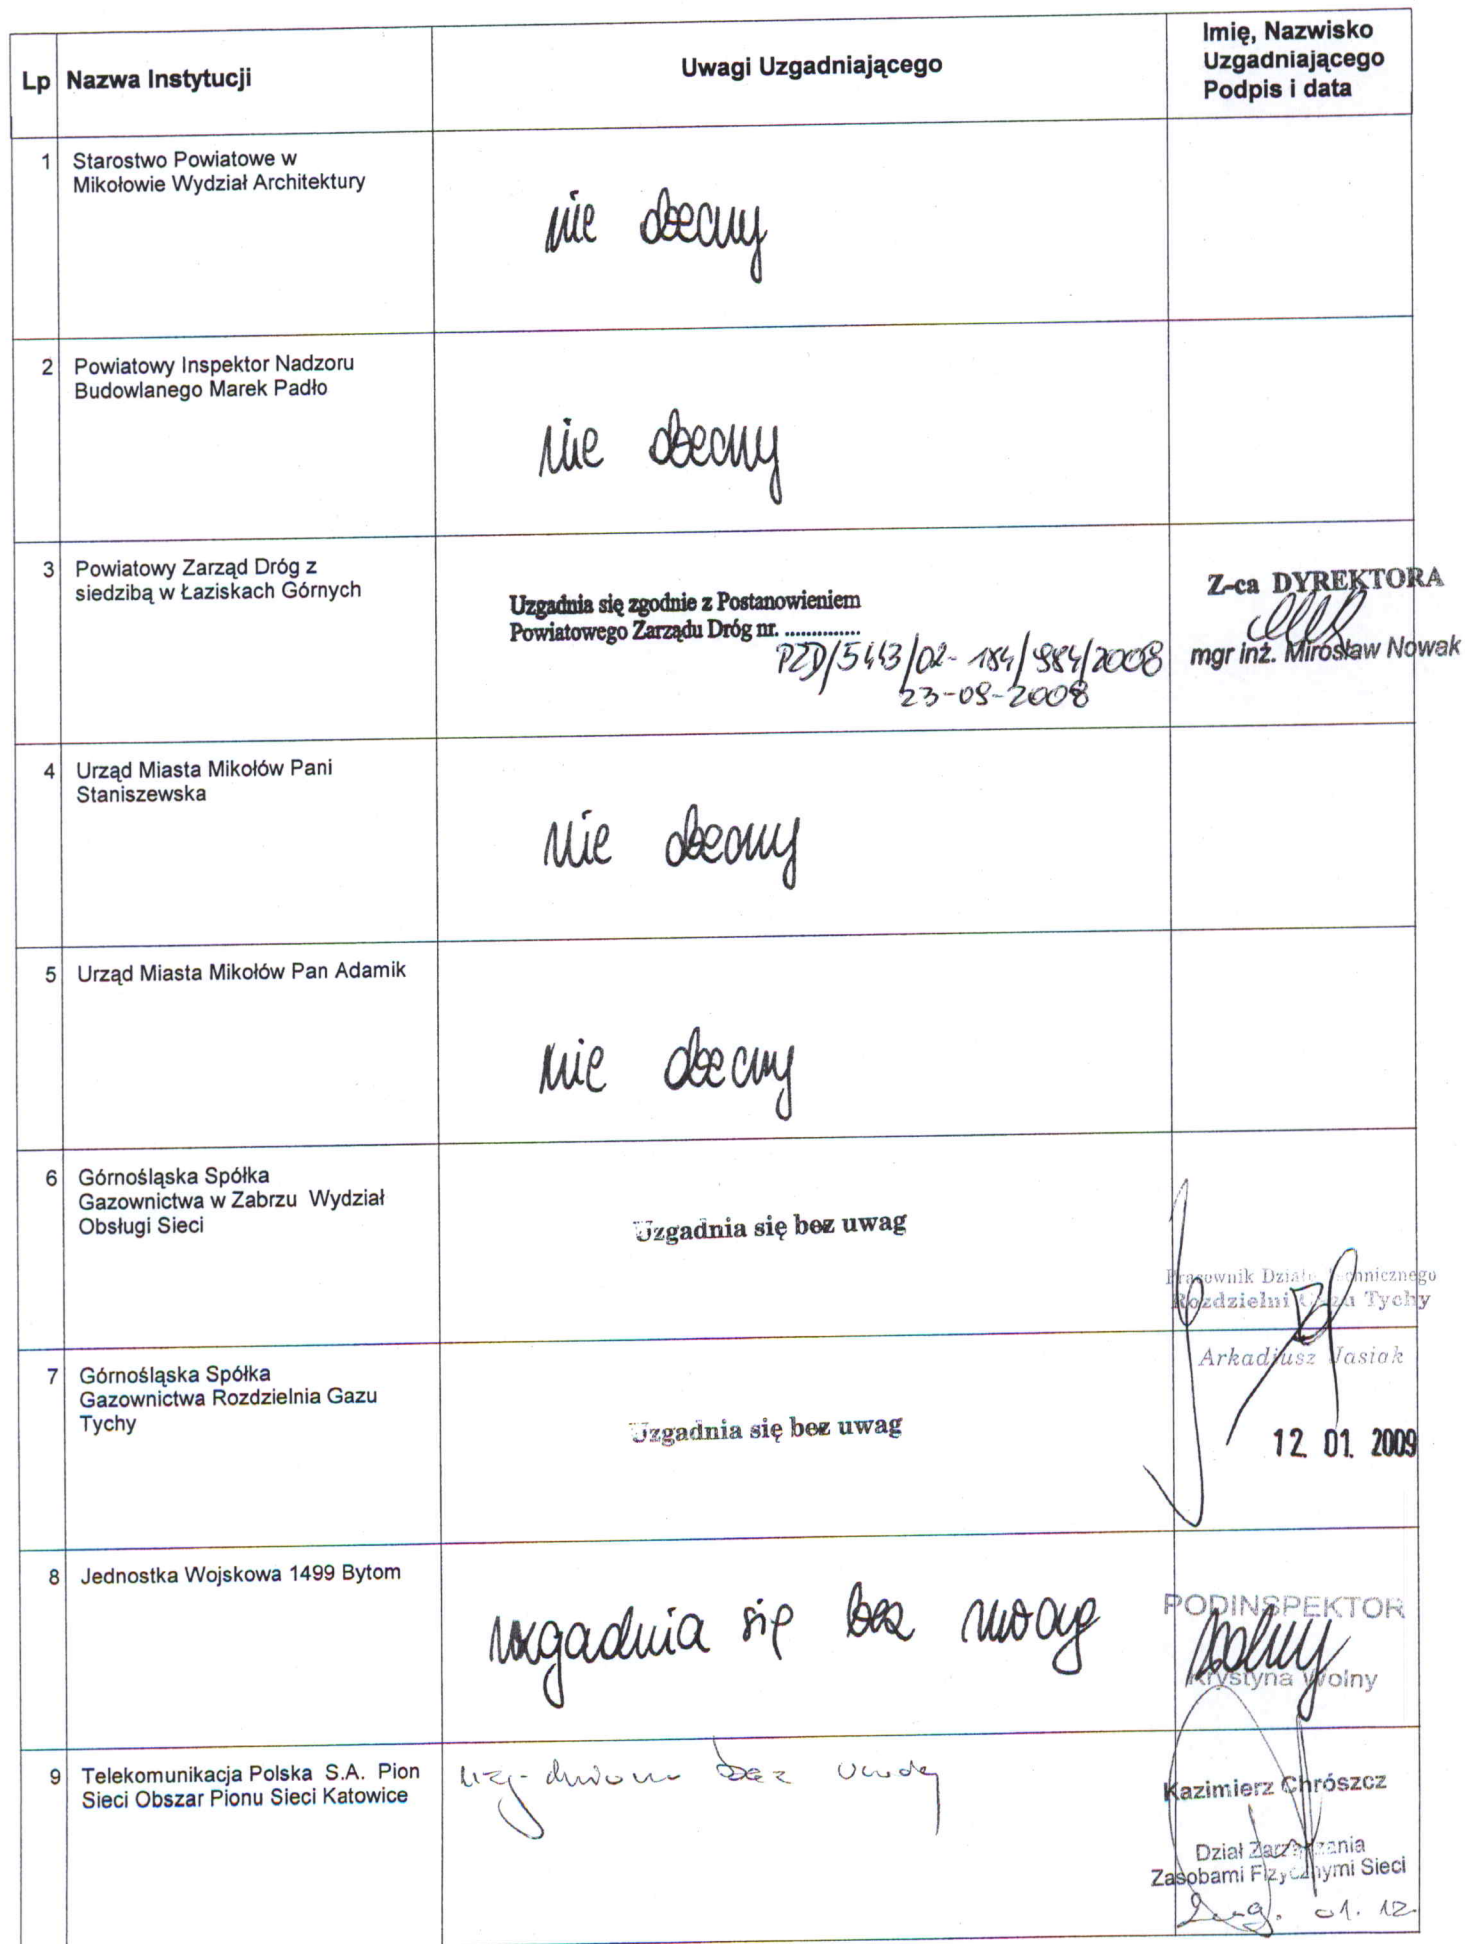 Lp Nazwa Instytucji Uwagi Uzgadniającego Imię, Nazwisko
Uzgadniającego
Podpis i data
1 Starostwo Powiatowe w
Mikołowie Wydział Architektury
nie obecny
2 Powiatowy Inspektor Nadzoru
Budowlanego Marek Padło
nie obecny
3 Powiatowy Zarząd Dróg z
siedzibą w Łaziskach Górnych
Uzgadnia się zgodnie z Postanowieniem
Powiatowego Zarządu Dróg nr. ..............
PZD/5443/02-184/984/2008
23-09-2008
Z-ca DYREKTORA
mgr inż. Mirosław Nowak
4 Urząd Miasta Mikołów Pani
Staniszewska
nie obecny
5 Urząd Miasta Mikołów Pan Adamik
nie obecny
6 Górnośląska Spółka
Gazownictwa w Zabrzu Wydział
Obsługi Sieci
Uzgadnia się bez uwag
Pracownik Działu Technicznego
Rozdzielni Gazu Tychy
Arkadiusz Jasiak
7 Górnośląska Spółka
Gazownictwa Rozdzielnia Gazu
Tychy
Uzgadnia się bez uwag
12. 01. 2009
8 Jednostka Wojskowa 1499 Bytom
uzgadnia się bez uwag
PODINSPEKTOR
Wolny
Krystyna Wolny
9 Telekomunikacja Polska S.A. Pion
Sieci Obszar Pionu Sieci Katowice
bez uwag
Kazimierz Chrószcz
Dział Zarządzania
Zasobami Fizycznymi Sieci
01. 12.